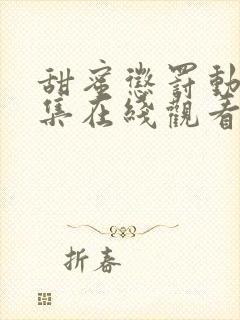 甜蜜懲罰動
集在綫觀看
折春